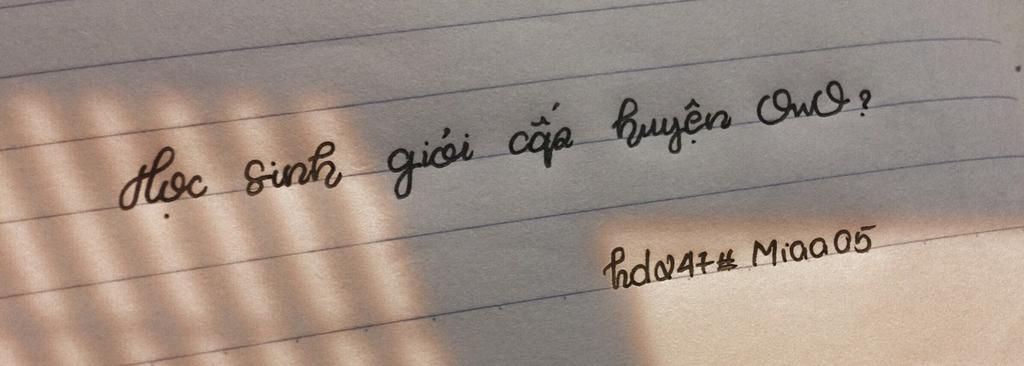 Học sinh giỏi cấp huyện OwO?
hdọ247# Miaa05